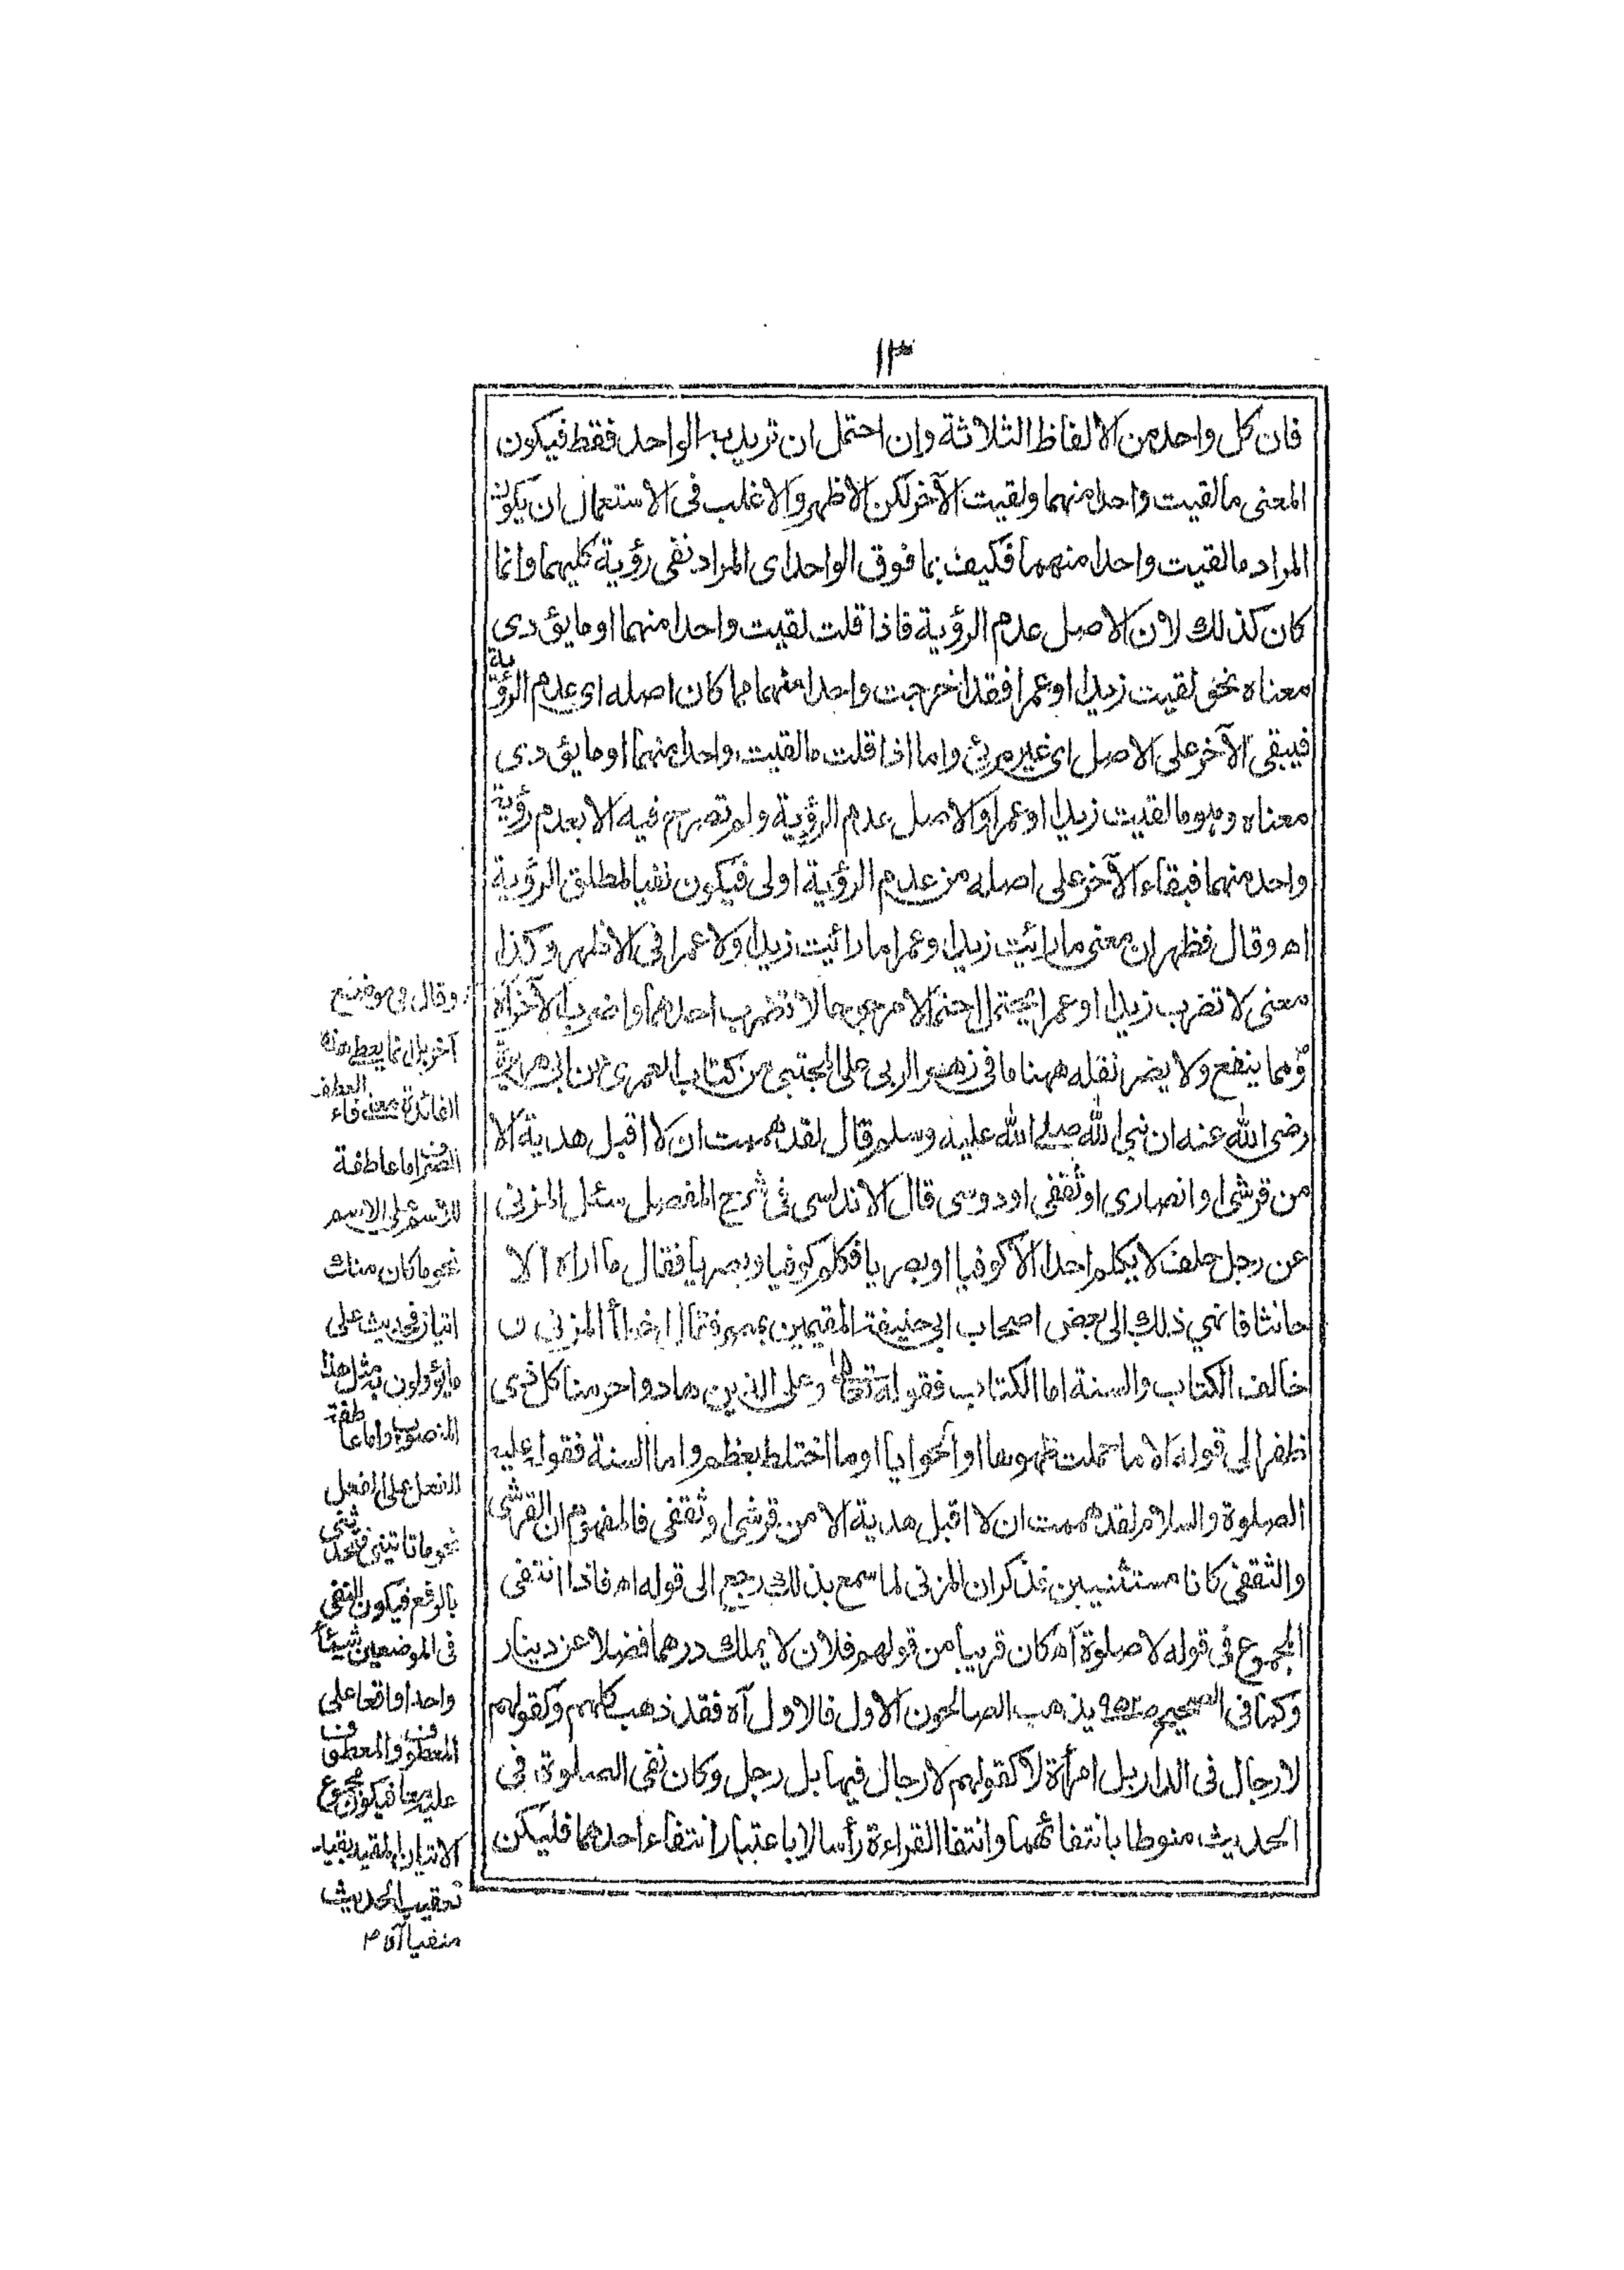 ١٣
فان كل واحد من الالفاظ الثلاثة وان احتمل ان تريد به الواحد فقط فيكون
المعنى ما لقيت واحدا منهما ولقيت الآخر لكن الاظهر والاغلب فى الاستعمال ان يكون
المراد ما لقيت واحدا منهما فكيف بما فوق الواحد اى المراد نفى رؤية كليهما وانما
كان كذلك لان الاصل عدم الرؤية فاذا قلت لقيت واحدا منهما او ما يؤدى
معناه نحو لقيت زيدا او عمرا فقد اخرجت واحدا منهما مما كان اصله اى عدم الرؤية
فيبقى الآخر على الاصل اى غير مرئ واما اذا قلت ما لقيت واحدا منهما او ما يؤدى
معناه وهو ما لقيت زيدا او عمرا والاصل عدم الرؤية ولم تصرح فيه الا بعدم رؤية
واحد منهما فبقاء الآخر على اصله من عدم الرؤية اولى فيكون نفيا لمطلق الرؤية
اه وقال فظهر ان معنى ما رائيت زيدا وعمرا ما رائيت زيدا ولا عمرا فى الاظهر وكذا
معنى لا تضرب زيدا او عمرا يحتمل احتمالا مرجوحا لا تضرب احدهما واضرب الآخر آه
ومما ينفع ولا يضر نقله ههنا ما فى زهر الربى على المجتبى من كتاب العمرى عن ابى هريرة
رضى الله عنه ان نبى الله صلى الله عليه وسلم قال لقد هممت ان لا اقبل هدية الا
من قرشى او انصارى او ثقفى او دوسى قال الاندلسى فى شرح المفصل سئل المزنى
عن رجل حلف لا يكلم احدا الا كوفيا او بصريا فكلم كوفيا وبصريا فقال ما اراه الا
حانثا فانهي ذلك الى بعض اصحاب ابى حنيفة المقيمين بمصر فقال اخطأ المزنى
خالف الكتاب والسنة اما الكتاب فقوله تعالى وعلى الذين هادوا حرمنا كل ذى
ظفر الى قوله الا ما حملت ظهورهما او الحوايا او ما اختلط بعظم واما السنة فقوله عليه
الصلوة والسلام لقد هممت ان لا اقبل هدية الا من قرشى او ثقفى فالمفهوم ان القرشى
والثقفى كانا مستثنيين فذكر ان المزنى لما سمع بذلك رجع الى قوله اه فاذا انتفى
المجموع فى قوله لا صلوة آه كان قريبا من قولهم فلان لا يملك درهما فضلا عن دينار
وكما فى الصحيح يذهب الصالحون الاول فالاول آه فقد ذهب كلهم وكقولهم
لا رجال فى الدار بل امرأة لا كقولهم لا رجال فيها بل رجل وكان نفى الصلوة فى
الحديث منوطا بانتفائهما وانتفا القراءة رأسا لا باعتبار انتفاء احدهما فليكن
وقال فى موضع
آخر بل انما يعطى هذه
الفائدة معنى فاء العطف
اما عاطفة
للاسم على الاسم
نحو ما كان منك
اتيان فحديث على
ما يؤولون به مثل هذا
المنصوب واما عاطفة
للفعل على الفعل
نحو ما تاتينى فتحدثنى
بالرفع فيكون النفى
فى الموضعين شيئا
واحدا واقعا على
المعطوف والمعطوف
عليه معا فيكون مجموع
الاتيان المقيد بقيد
تعقيب الحديث
منفيا آه ١٢